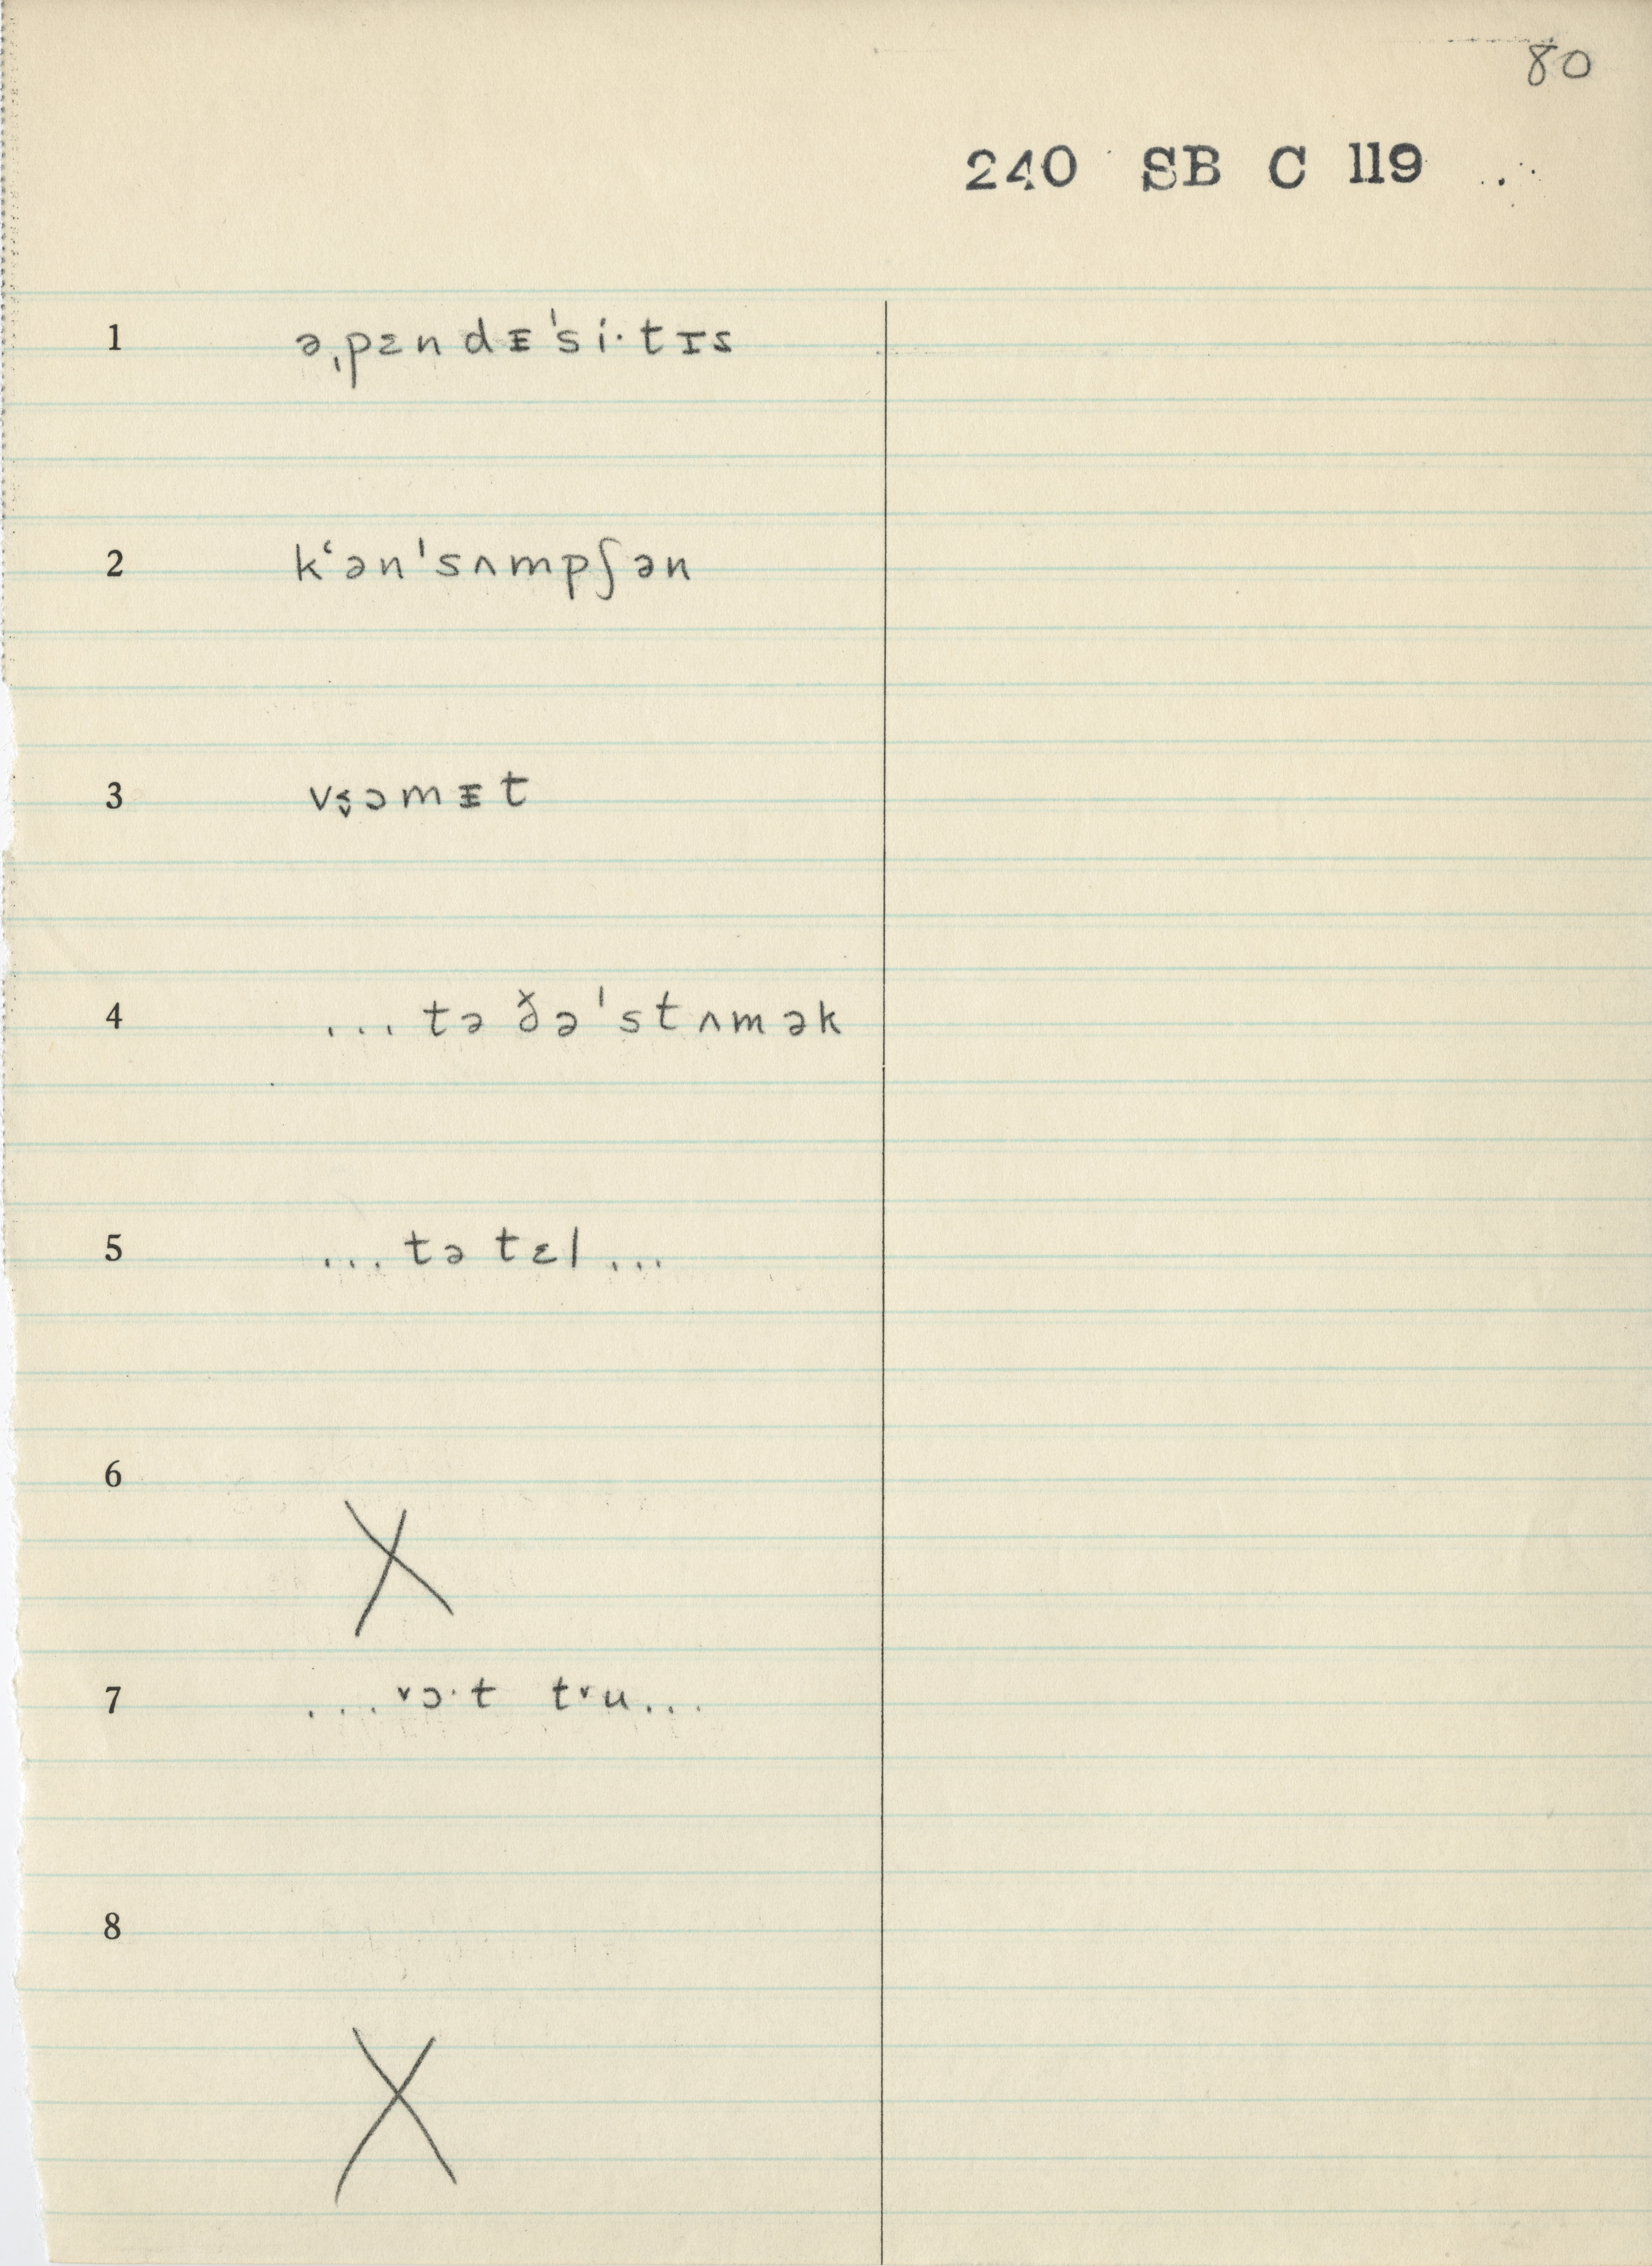 80
240 SB C 119
1 əˌpɛndᵻˈsi·tɪs
2 kʻənˈsʌmpʃən
3 vs̬ɔmᵻt
4 ... tə ðəˈstʌmək
5 ... tə tɛl ...
6 X
7 ... ˅ɔ·t t˅u ...
8 X